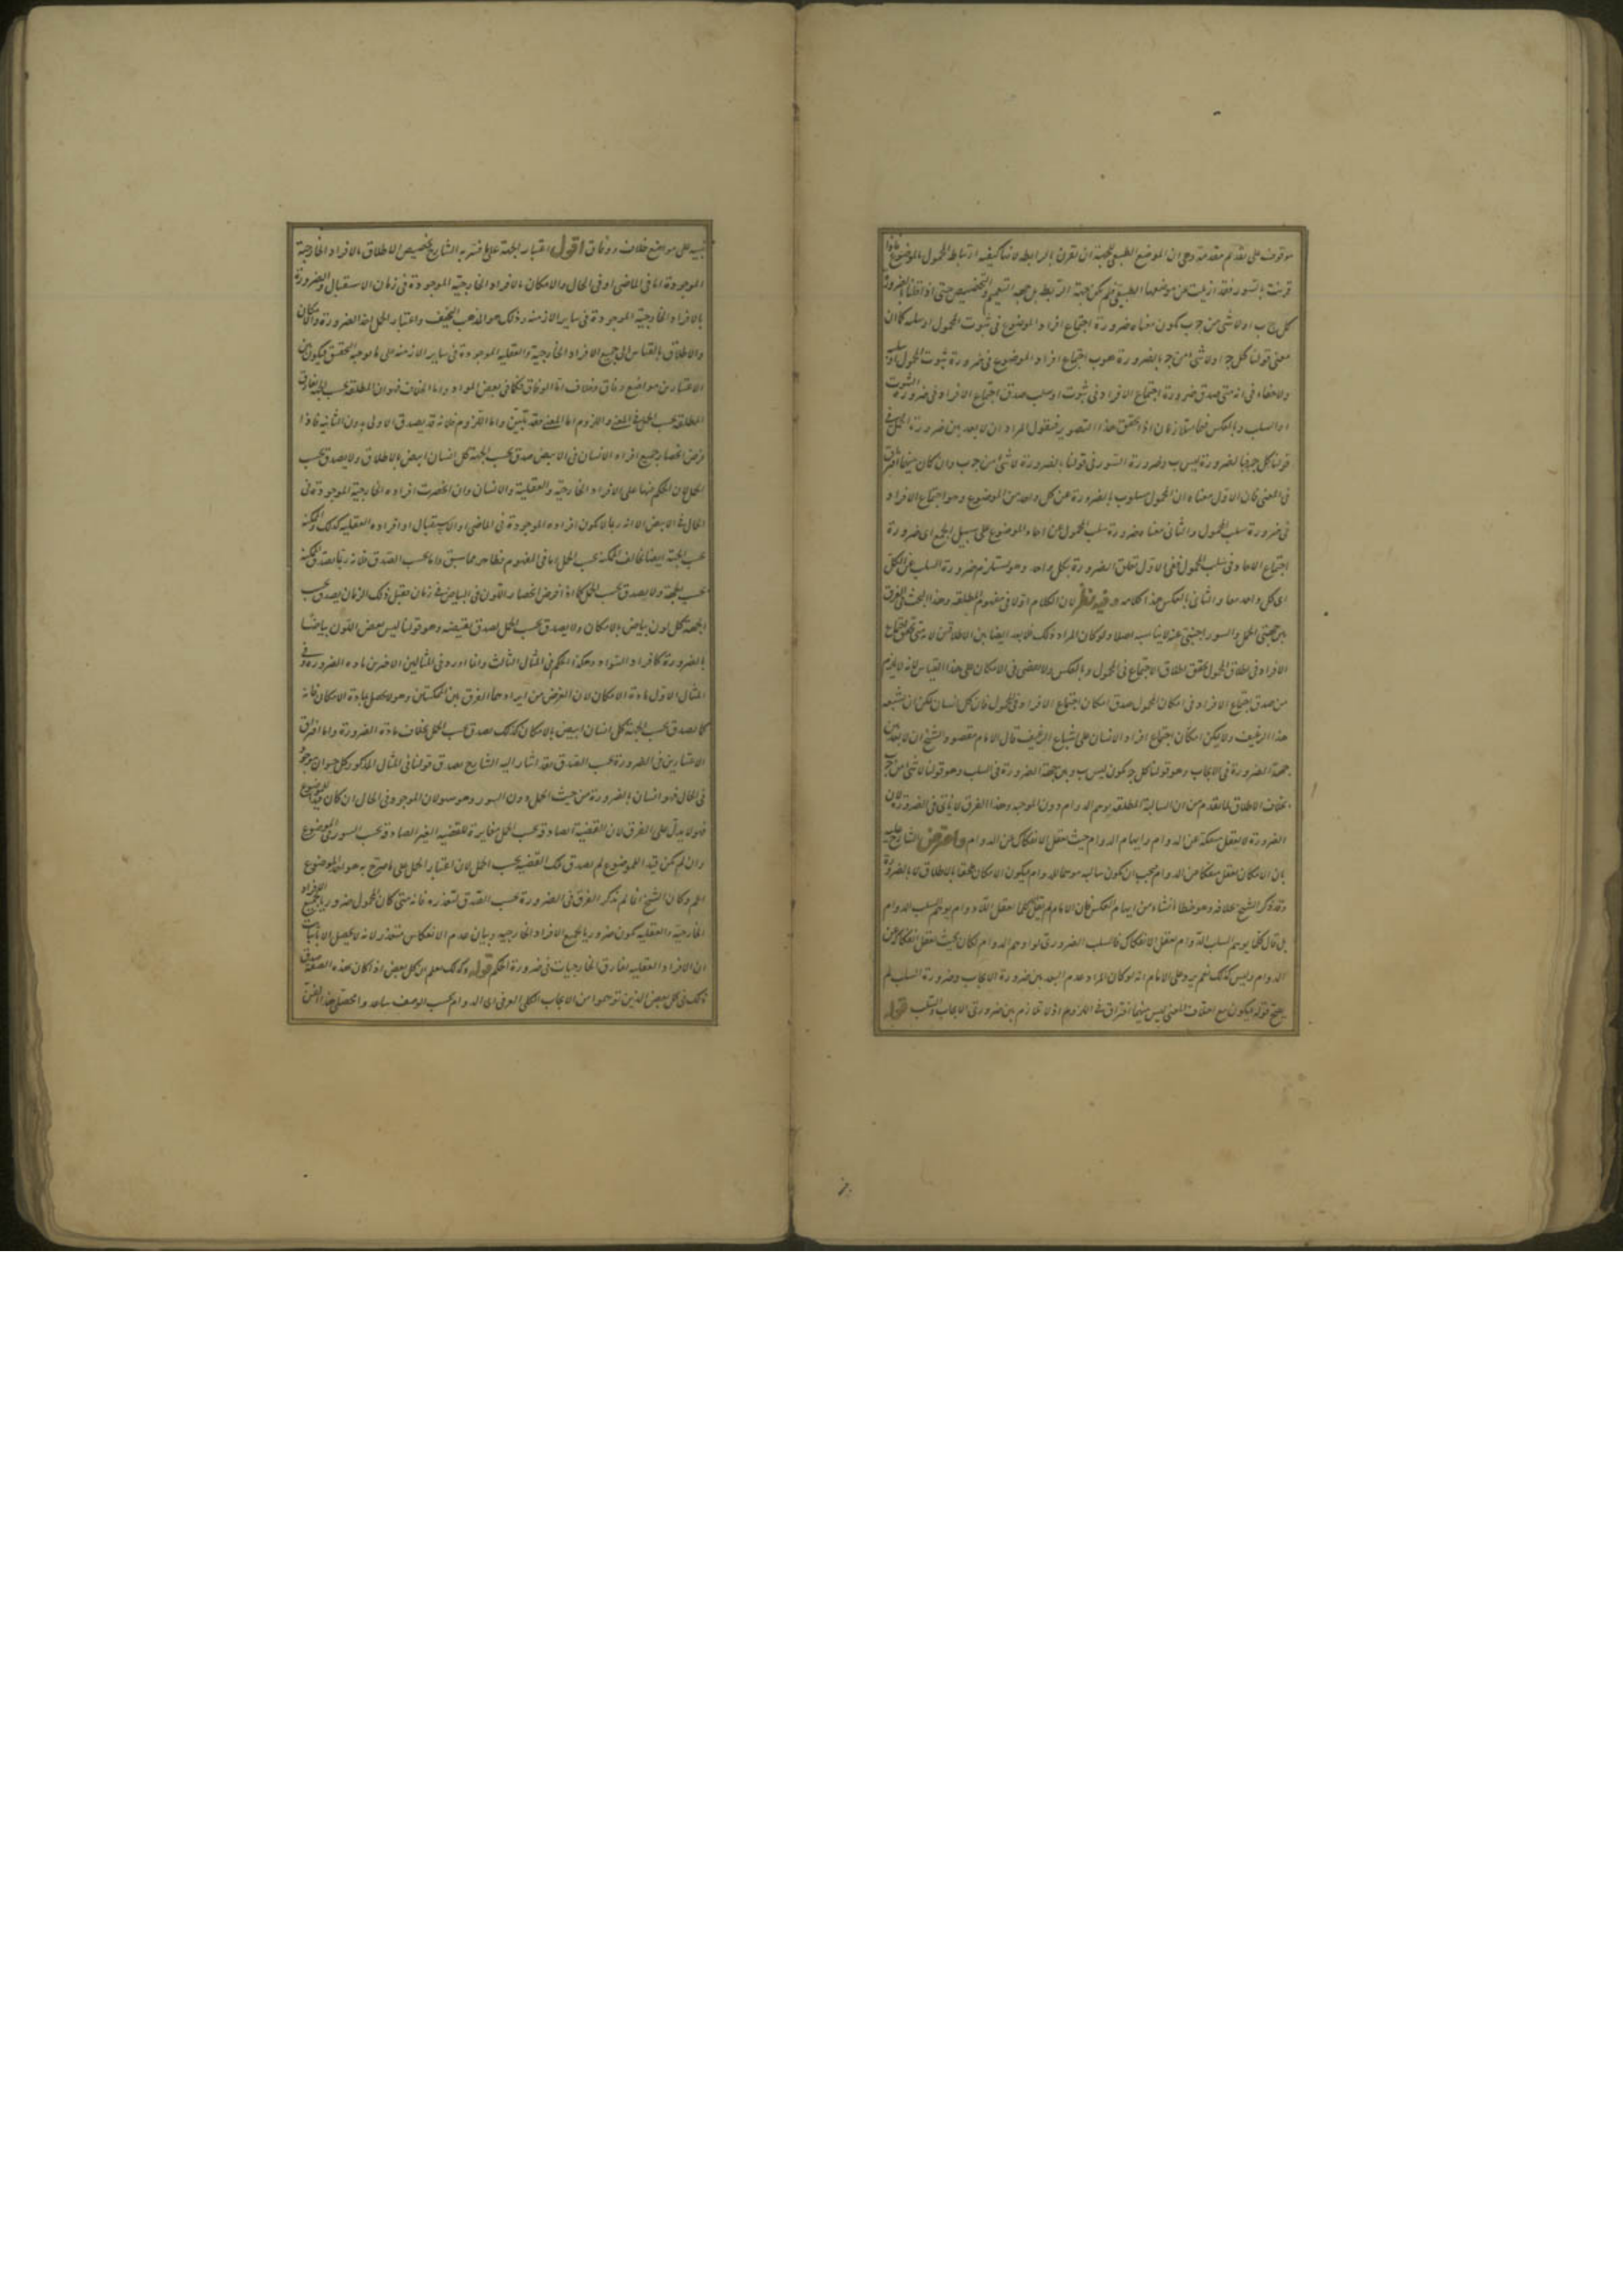 موقوف على تقديم مقدمة وهي ان الموضع الطبيعي للجهة ان تقرن بالرابطه لانها كيفيه ارتباط المحمول بالموضوع فاذا
قرنت بالسور فقد ازيلت عن موضعها الطبيعي فلم يكن جهة الربط بل جهة التعميم والتخصيص حتى اذا قلنا بالضرورة
كل ج ب او لا شئ من ج ب يكون معناه ضرورة اجتماع افراد الموضوع في ثبوت المحمول او سلبه كما ان
معنى قولنا كل ج او لا شئ من ج بالضرورة هو ب اجتماع افراد الموضوع في ضرورة ثبوت المحمول او سلبه
ولا خفاء في انه متى صدق ضرورة اجتماع الافراد في ثبوت او سلب صدق اجتماع الافراد في ضرورة الثبوت
او السلب وبالعكس فهما متلازمان اذا تحقق هذا التصوير فنقول المراد ان لا بعد بين ضرورة الحمل في
قولنا كل ج بالضرورة ليس ب وضرورة السور في قولنا بالضرورة لا شئ من ج ب وان كان بينهما افتراق
في المعنى فان الاول معناه ان المحمول مسلوب بالضرورة عن كل واحد من الموضوع وهو اجتماع الافراد
في ضرورة سلب المحمول والثاني معناه ضرورة سلب المحمول عن احاد الموضوع على سبيل الجمع اى ضرورة
اجتماع الاحاد في سلب المحمول ففي الاول تعلق الضرورة بكل واحد وهو مستلزم ضرورة السلب عن الكل
اى كل واحد معا والثاني بالعكس هذا كلامه وفيه نظر لان الكلام اولا في مفهوم المطلقه وهذا البحث في الفرق
بين جهتي الحمل والسور اجنبي عنه لا يناسبه اصلا ولو كان المراد ذلك فلا بعد ايضا بين الاطلاقين لانه متى تحقق اجتماع
الافراد في اطلاق المحمول تحقق اطلاق الاجتماع في المحمول وبالعكس ولا يمضى في الامكان على هذا القياس لانه لا يلزم
من صدق اجتماع الافراد في امكان المحمول صدق امكان اجتماع الافراد في المحمول فان كل انسان يمكن ان يشبعه
هذا الرغيف ولا يمكن امكان اجتماع افراد الانسان على اشباع الرغيف قال الامام مقصود الشيخ ان لا بعد بين
جهة الضرورة في الايجاب وهو قولنا كل ج يكون ليس ب وبين جهة الضرورة في السلب وهو قولنا لا شئ من ج ب
بخلاف الاطلاق لما تقدم من ان السالبة المطلقه يوهم الدوام دون الموجبه وهذا الفرق لا ياتي في الضرورة لان
الضرورة لا يعقل منفكة عن الدوام وايهام الدوام حيث يعقل الانفكاك عن الدوام واعترض الشارح عليه
بان الامكان يعقل منفكا عن الدوام فيجب ان يكون سالبه موهما للدوام فيكون الامكان ملحقا بالاطلاق لا بالضرورة
وقد ذكر الشيخ خلافه وهو خطأ انشاء من ايهام العكس فان الامام لم يقل كلما يعقل اللادوام يوهم السلب الدوام
بل قال كلما يوهم السلب الدوام يعقل الانفكاك فالسلب الضرورى لو اوهم الدوام لكان بحيث يعقل انفكاكه عن
الدوام وليس كذلك نعم يرد على الامام انه لو كان المراد عدم البعد بين ضرورة الايجاب وضرورة السلب لم
يصح قوله فيكون مع اختلاف المعنى ليس بينهما افتراق في اللزوم اذ لا تلازم بين ضرورتي الايجاب والسلب قوله
تنبيه على مواضع خلاف ووفاق اقول اعتبار الجهة على ما فسر به الشارح تخصيص الاطلاق بالافراد الخارجية
الموجودة اما في الماضى او في الحال والامكان بالافراد الخارجية الموجودة في زمان الاستقبال والضرورة
بالافراد الخارجية الموجودة في ساير الازمنه وذلك هو المذهب السخيف واعتبار الحمل اخذ الضرورة والامكان
والاطلاق بالقياس الى جميع الافراد الخارجية والعقليه الموجودة في ساير الازمنه على ما يوجبه التحقيق فيكون بين
الاعتبارين مواضع وفاق وخلاف اما الوفاق فكما في بعض المواد واما الخلاف فهو ان المطلقه بحسب الجهة يفارق
المطلقه بحسب الحمل في المعنى واللزوم اما المعنى فقد تبين واما اللزوم فلانه قد يصدق الاولى بدون الثانيه فاذا
فرض انحصار جميع افراد الانسان في الابيض صدق بحسب الجهة كل انسان ابيض بالاطلاق ولا يصدق بحسب
الحمل لان الحكم فيها على الافراد الخارجية والعقلية والانسان وان انحصرت افراده الخارجية الموجودة في
الحال في الابيض الا انه ربما لا يكون افراده الموجودة في الماضى او الاستقبال او افراده العقليه كذلك والممكنه
بحسب الجهة ايضا تخالف الممكنه بحسب الحمل اما في المفهوم فظاهر مما سبق واما بحسب الصدق فلانه ربما يصدق الممكنه
بحسب الجهة ولا يصدق بحسب الحمل كما اذا فرض انحصار اللون في البياض في زمان فقبل ذلك الزمان يصدق بحسب
الجهة كل لون بياض بالامكان ولا يصدق بحسب الحمل لصدق نقيضه وهو قولنا ليس بعض اللون بياضا
بالضرورة كافراد السواد وهكذا الحكم في المثال الثالث وانما اورد في المثالين الاخرين مادة الضرورة وفي
المثال الاول مادة الامكان لان الغرض من ايرادهما الفرق بين الممكنتين وهو لا يحصل بمادة الامكان فانه
كما يصدق بحسب الجهة كل انسان ابيض بالامكان كذلك يصدق بحسب الحمل بخلاف مادة الضرورة واما افتراق
الاعتبارين في الضرورة بحسب الصدق فقد اشار اليه الشارح بصدق قولنا في المثال المذكور كل حيوان موجود
في الحال فهو انسان بالضرورة من حيث الحمل دون السور وهو سهو لان الموجود في الحال ان كان قيد الموضوع
فهو لا يدل على الفرق لان القضية الصادقة بحسب الحمل مغايرة للقضيه الغير الصادقة بحسب السور في الموضوع
وان لم يكن قيد الموضوع لم يصدق تلك القضيه بحسب الحمل لان اعتبار الحمل على ما صرح به هو اخذ الموضوع
اعم وكان الشيخ انما لم يذكر الفرق في الضرورة بحسب الصدق لتعذره فانه متى كان المحمول ضروريا لجميع الافراد
الخارجية والعقليه يكون ضروريا لجميع الافراد الخارجيه وبيان عدم الانعكاس متعذر لانه لا يحصل الا باثبات
ان الافراد العقليه يفارق الخارجيات في ضرورة الحكم قوله وكذلك معلم ان كل بعض اذا كان بهذه الصفة صدق
ذلك في كل بعض الذين توهموا من الايجاب الكلى العرفى اى الدوام بحسب الوصف ساعدوا المحصلين في هذا الفن